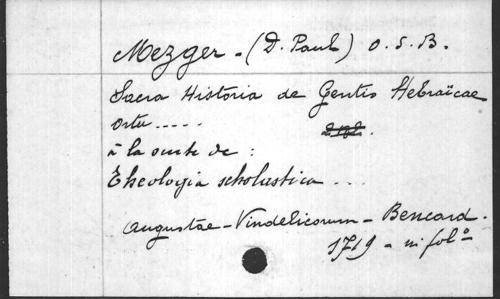 Mezger - (D. Paul) O. S. B.
Sacra Historia de Gentis Hebraïcae
ortu .....
à la suite de :
Theologia scholastica ...
Augustae - Vindelicorum - Bencard.
1719 - in folº